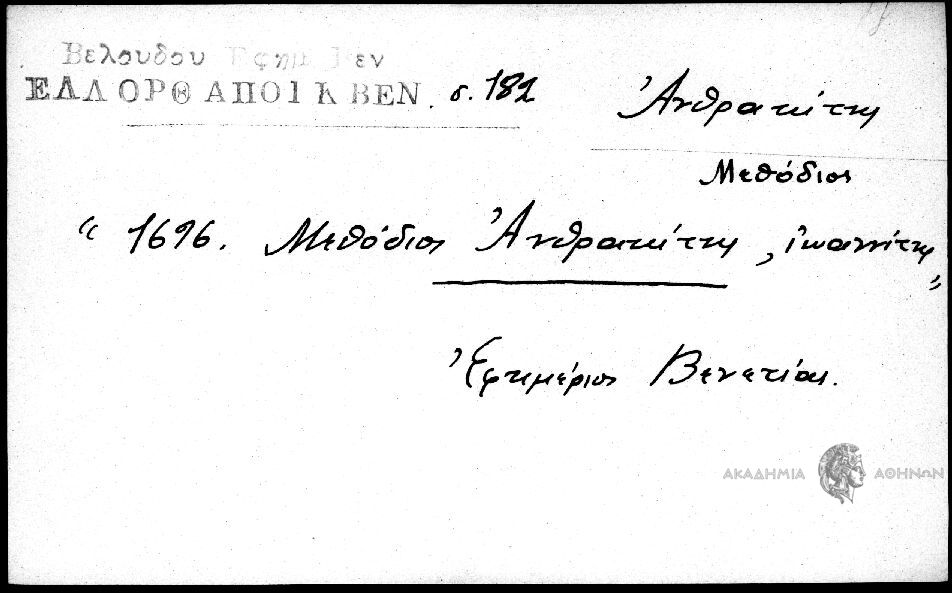 Βελουδου Εφημ Βεν
ΕΛΛ ΟΡΘ ΑΠΟΙΚ ΒΕΝ. σ. 182
Ἀνθρακίτης
Μεθόδιος
“ 1696. Μεθόδιος Ἀνθρακίτης, ἰωαννίτης”
Ἐφημέριος Βενετίας.
ΑΚΑΔΗΜΙΑ ΑΘΗΝΩΝ